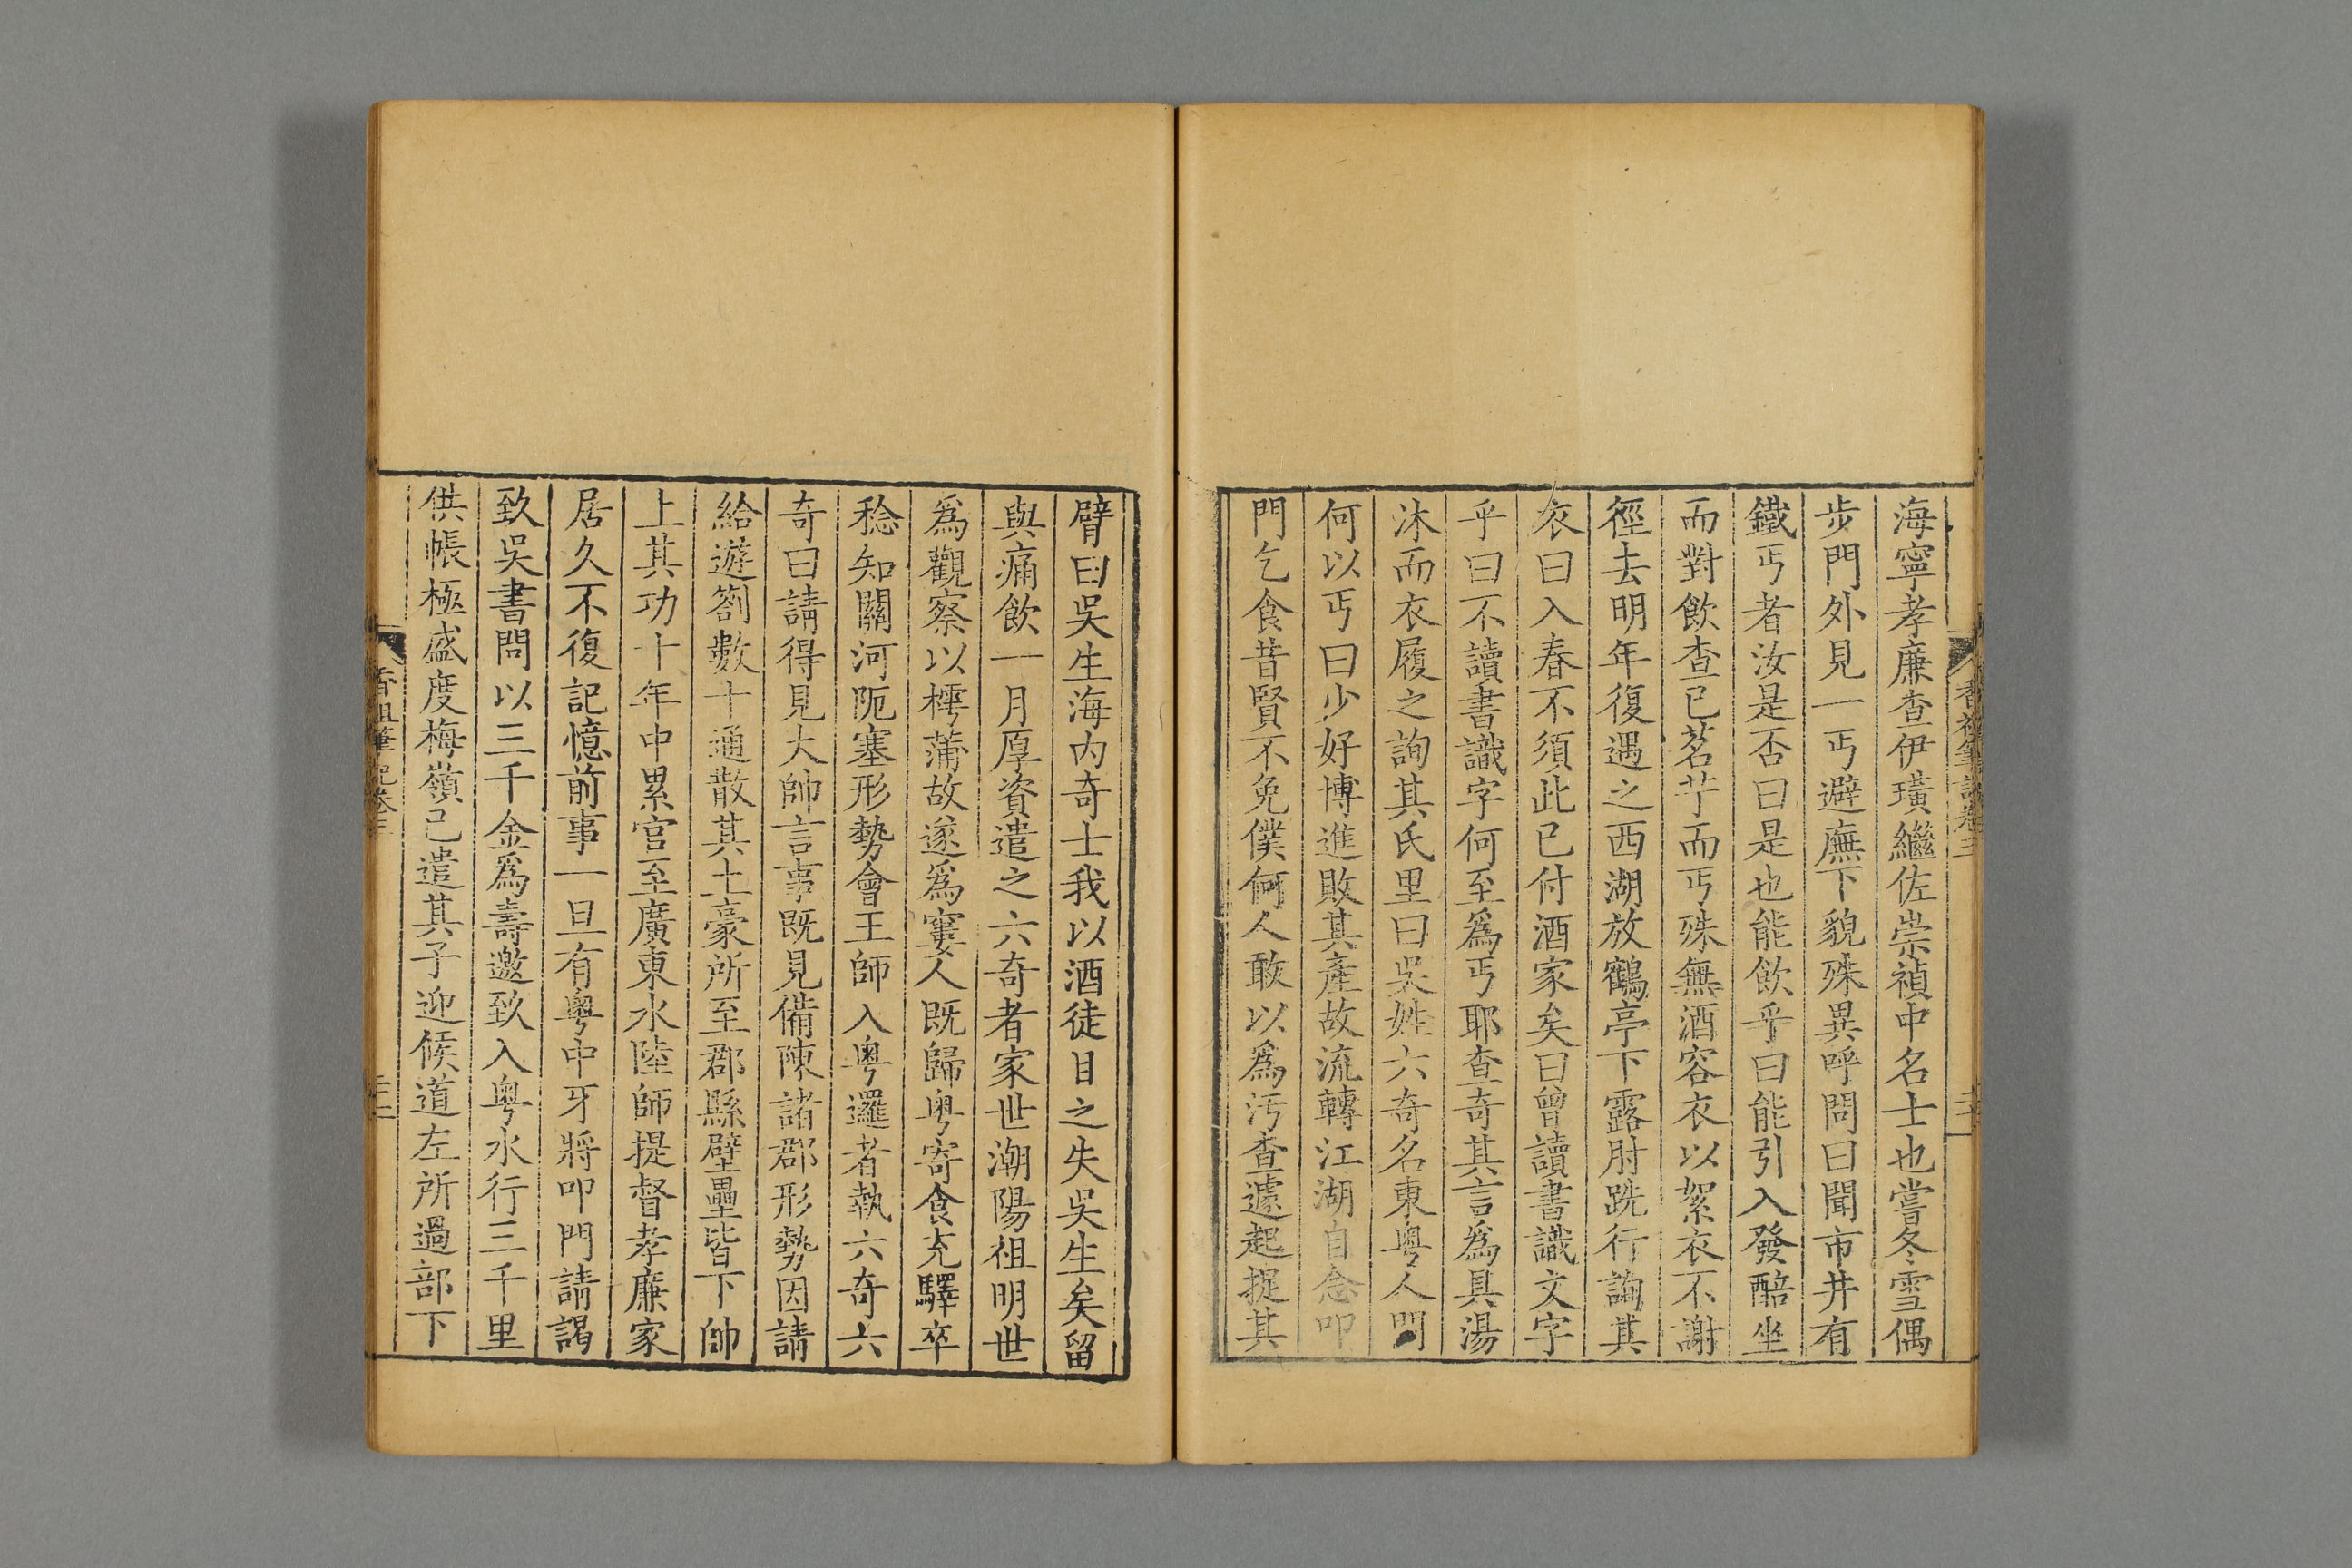 海寧孝廉查伊璜繼佐崇禎中名士也嘗冬雪偶
步門外見一丐避廡下貌殊異呼問曰聞市井有
鐵丐者汝是否曰是也能飲乎曰能引入發醅坐
而對飲查已茗艼而丐殊無酒容衣以絮衣不謝
徑去明年復遇之西湖放鶴亭下露肘跣行詢其
衣曰入春不須此已付酒家矣曰曾讀書識文字
乎曰不讀書識字何至爲丐耶查奇其言爲具湯
沐而衣履之詢其氏里曰吳姓六奇名東粵人問
何以丐曰少好博進敗其產故流轉江湖自念叩
門乞食昔賢不免僕何人敢以爲汚查遽起捉其
臂曰吳生海內奇士我以酒徒目之失吳生矣留
與痛飲一月厚資遣之六奇者家世潮陽祖明世
爲觀察以樗蒲故遂爲窶人既歸粤寄食充驛卒
稔知關河阨塞形勢會王師入粤邏者執六奇六
奇曰請得見大帥言事既見備陳諸郡形勢因請
給遊劄數十通散其土豪所至郡縣壁壘皆下帥
上其功十年中累官至廣東水陸師提督孝廉家
居久不復記憶前事一旦有粵中牙將叩門請謁
致吳書問以三千金爲壽邀致入粵水行三千里
供帳極盛度梅嶺已遣其子迎候道左所過部下
香祖筆記卷三